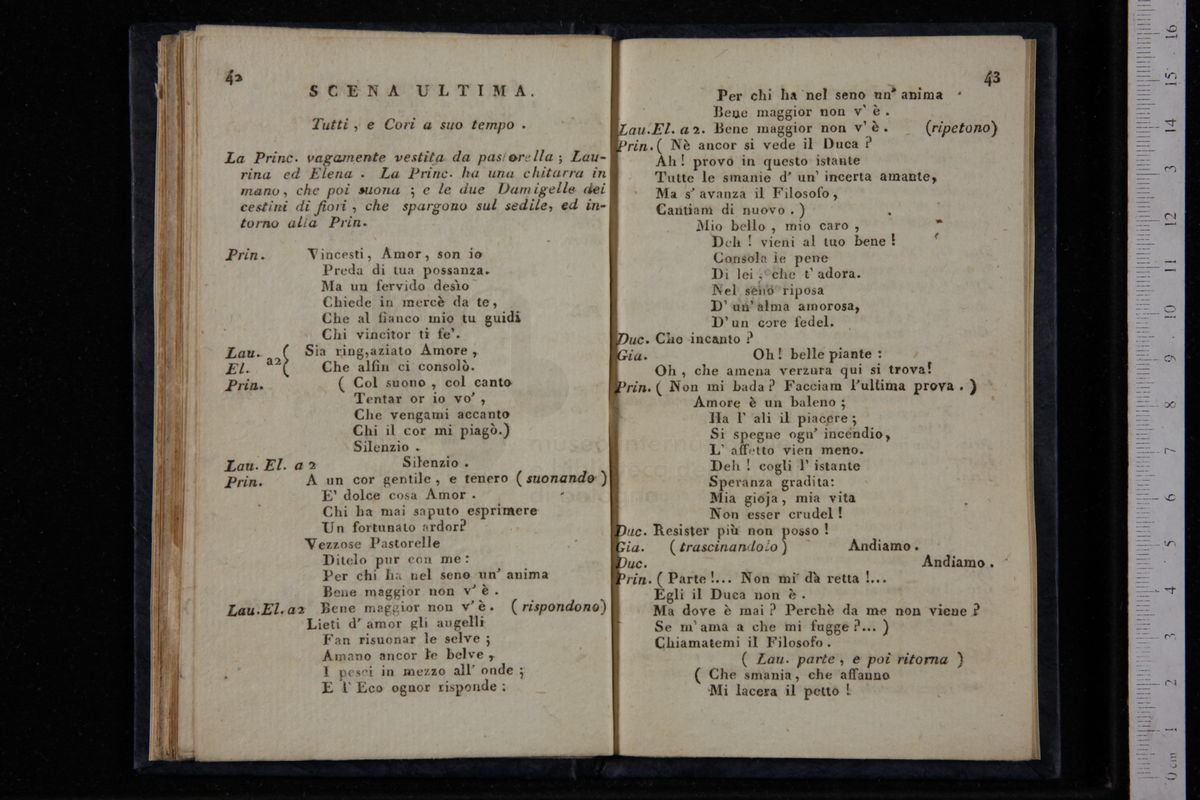 42
SCENA ULTIMA.
Tutti , e Cori a suo tempo .
La Princ. vagamente vestita da pastorella ; Lau-
rina ed Elena . La Princ. ha una chitarra in
mano, che poi suona ; e le due Damigelle dei
cestini di fiori , che spargono sul sedile, ed in-
torno alla Prin.
Prin. Vincesti, Amor, son io
Preda di tua possanza.
Ma un fervido desìo
Chiede in mercè da te,
Che al fianco mio tu guidi
Chi vincitor ti fe'.
Lau. ( Sia ring,aziato Amore ,
El. a2 ( Che alfin ci consolò.
Prin. ( Col suono , col canto
Tentar or io vo' ,
Che vengami accanto
Chi il cor mi piagò.)
Silenzio .
Lau. El. a 2 Silenzio .
Prin. A un cor gentile , e tenero ( suonando )
E' dolce cosa Amor .
Chi ha mai saputo esprimere
Un fortunato ardor?
Vezzose Pastorelle
Ditelo pur con me :
Per chi ha nel seno un' anima
Bene maggior non v' è .
Lau.El. a2 Bene maggior non v' è . ( rispondono)
Lieti d' amor gli augelli
Fan risuonar le selve ;
Amano ancor le belve ,
I pesci in mezzo all' onde ;
E l' Eco ognor risponde :
43
Per chi ha nel seno un' anima
Bene maggior non v' è .
Lau.El. a 2. Bene maggior non v' è . (ripetono)
Prin. ( Nè ancor si vede il Duca ?
Ah ! provo in questo istante
Tutte le smanie d' un' incerta amante,
Ma s' avanza il Filosofo ,
Cantiam di nuovo . )
Mio bello , mio caro ,
Deh ! vieni al tuo bene !
Consola le pene
Di lei , che t' adora.
Nel seno riposa
D' un' alma amorosa,
D' un core fedel.
Duc. Che incanto ?
Gia. Oh ! belle piante :
Oh , che amena verzura qui si trova!
Prin. ( Non mi bada ? Facciam l'ultima prova . )
Amore è un baleno ;
Ha l' ali il piacere ;
Si spegne ogn' incendio,
L' affetto vien meno.
Deh ! cogli l' istante
Speranza gradita:
Mia gioja, mia vita
Non esser crudel !
Duc. Resister più non posso !
Gia. ( trascinandolo ) Andiamo .
Duc. Andiamo .
Prin. ( Parte !... Non mi dà retta !...
Egli il Duca non è .
Ma dove è mai ? Perchè da me non viene ?
Se m' ama a che mi fugge ?... )
Chiamatemi il Filosofo .
( Lau. parte , e poi ritorna )
( Che smania , che affanno
Mi lacera il petto !